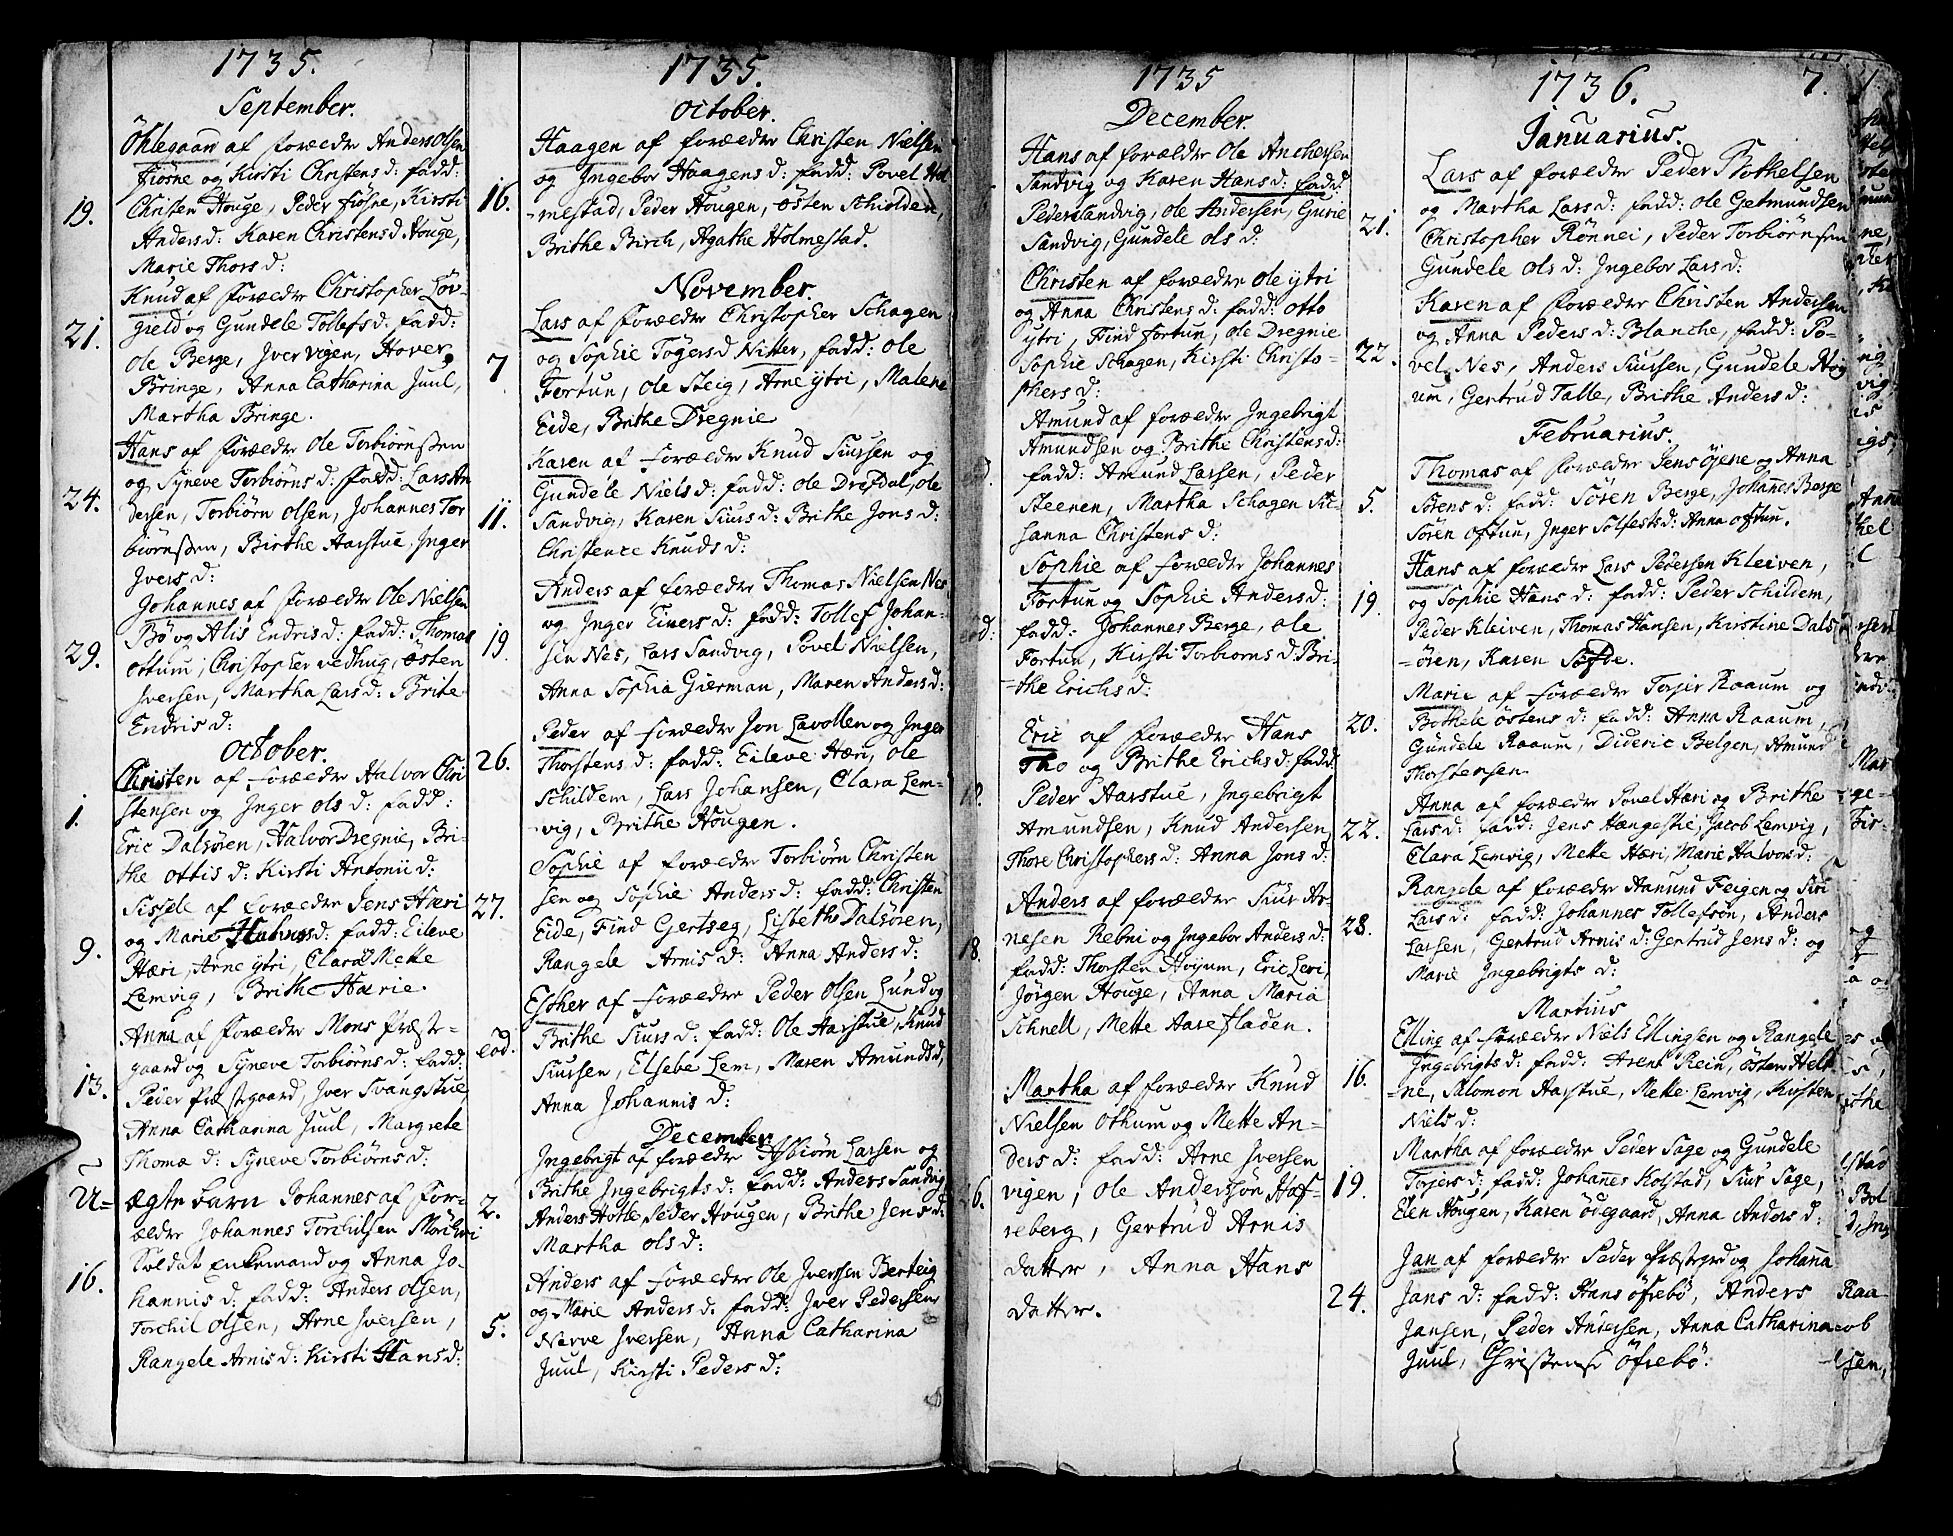 1735.
September.
Öhlegaan af forældre Anders Olsen
fiösne og Kirsti Christens d: fadd:
19. Christen Houge, Peder fiösne, Kirsti
Anders d: Karen Christens d Houge,
Marie Thors d:
Knud af forældre Christopher Löv-
21. gield og Gundele Tollefs d: fadd:
Ole Berge, Jver vigen, Hover
Bringe, Anna Catharina Juul,
Martha Bringe.
Hans af forældre Ole Torbiörnssen
og Syneve Torbiörns d: fadd: Lars An
24. dersen, Torbiörn Olsen, Johannes Tor
biörnssen, Birthe Aarstue, Inger
Jvers d:
Johannes af forældre Ole Nielsen
Bö og Alis Endris d: fadd: Thomas
29. Ottum, Christopher vedhug, Østen
Jversen, Martha Lars d: Brite
Endris d:
October.
Christen af forældre Halvor Chri
1. stensen og Inger Ols d: fadd:
Eric Dalsören, Halvor Dregnie, Bri-
the Ottis d: Kirsti Antonii d:
Sissele af forældre Jens Hæri
9. og Marie d: fadd: Eileve
Hæri, Arne ytri, Clara Mette
Lemvig, Brithe Hærie.
Anna af forældre Mons Præste-
gaard og Syneve Torbiörns d: fadd:
13. Peder Præstgaard, Jver Svangstue,
Anna Catharina Juul, Margrete
Thomæ d: Syneve Torbiörns d:
U= ægte barn Johannes af For-
ældre Johannes Torchilsen Mörchri
Soldat enkemand og Anna Jo-
16. hannis d: fadd: Anders Olsen,
Torchil Olsen, Arne Jversen,
Rangele Arnis d: Kirsti Hans d:
1735.
October.
Haagen af forældre Christen Nielsen
og Ingebor Haagens d: fadd: Povel Hol
16. -mestad, Peder Hougen, Østen Schiolden,
Brithe Birch, Agathe Holmestad.
November.
Lars af forældre Christopher Schagen
7 og Sophie Tögers d Nitter, fadd: Ole
Fortun, Ole Steig, Arne ytri, Malene
Eide, Brithe Dregnie
Karen af forældre Knud Siursen og
Gundele Niels d: fadd: Ole Drefdal, Ole
11. Sandvig, Karen Siurs d: Brithe Jons d:
Christence Knuds d:
Anders af forældre Thomas Nielsen Nes
og Inger Einers d: fadd: Tollef Johan-
19. sen Nes, Lars Sandvig, Povel Nielsen,
Anna Sophia Gierman, Maren Anders d:
Peder af forældre Jon Lavollen og Inger
26. Thorstens d: fadd: Eileve Hæri, Ole
Schildem, Lars Johansen, Clara Lem-
vig, Brithe Hougen.
Sophie af forældre Torbiörn Christen
27. sen og Sophie Anders d: fadd: Christen
Eide, Find Gertseg, Lisbeth Dalsören,
Rangele Arnis d: Anna Anders d:
Esther af forældre Peder Olsen Lund og
eod. Brithe Siurs d: fadd: Ole Aarstue, Knud
Siursen, Elsebe Lem, Maren Amunds d,
Anna Johannis d:
December.
Ingebrigt af forældre Asbiörn Larsen og
Brithe Ingebrigts d: fadd: Anders Sandvig
2. Anders Hotle Peder Hougen, Brithe Jens d:
Martha Ols d:
Anders af forældre Ole Jverssen Berteig
og Marie Anders d: fadd: Jver Pedersen
5. Nerve Jversen, Anna Catharina
Juul, Kirsti Peders d:
1735
December.
Hans af forældre Ole Anchersen
Sandvig og Karen Hans d: fadd:
Peder Sandvig, Ole Andersen, Gurie
Sandvig, Gundele Ols d:
Christen af forældre Ole ytri
og Anna Christens d: fadd: Otto
ytri, Find fortun, Ole Dregnie
Sophie Schagen, Kirsti Christo-
phers d:
Amund af forældre Ingebrigt
Amundsen og Brithe Christens d:
fadd: Amund Larsen, Peder
Steenen, Martha Schagen Su-
sanna Christens d:
Sophie af forældre Johannes
Fortun og Sophie Anders d:
fadd: Johannes Berge, Ole
Fortun, Kirsti Torbiörns d. Bri-
the Erichs d:
Eric af forældre Hans
Tho og Brithe Erichs d: fadd
18. Peder Aarstue, Ingebrigt
Amundsen, Knud Andersen,
Thore Christophers d: Anna Jons d:
Anders af forældre Siur Ar-
nesen Rebni og Ingebor Anders d:
18. fadd: Thorsten Höyum, Eric Leri,
Jörgen Houge, Anna Maria
Schnell, Mette Harefladen.
Martha af forældre Knud
Nielsen Othum og Mette An-
ders d: fadd: Arne Jversen
26. vigen, Ole Andersön Haf-
reberg, Gertrud Arnis
datter, Anna Hans
datter.
1736. 7.
Ianuarius.
Lars af forældre Peder Bothelsen
og Martha Lars d: fadd: Ole Getmundsen
21. Christopher Rönnei, Peder Torbiörnsen
Gundele Ols d: Ingebor Lars d:
Karen af forældre Christen Andersen
og Anna Peders d: Blanche, fadd: Po-
22. vel Nes, Anders Siursen, Gundele Hog
um, Gertrud Talle, Brithe Anders d:
Februarius.
Thomas af forældre Jens Öjene og Anna
5. Sörens d: fadd: Sören Berge, Johannes Berge
Sören Oftun, Inger Solfests d: Anna Oftun.
Hans af forældre Lars Pedersen Kleiven,
19. og Sophie Hans d: fadd: Peder Schildem,
Peder Kleiven, Thomas Hansen, Kirstine Dals
=ören, Karen Söfde.
Marie af forældre Torjer Raaum og
20. Bothele Östens d: fadd: Anna Raaum,
Gundele Raaum, Dideric Belgen, Amund
Thorstensen.
Anna af forældre Povel Hæri og Brithe
22. Lars d: fadd: Jens Hængestie, Jacob Lemvig,
Clara Lemvig, Mette Hæri, Marie Halvors d:
Rangele af forældre Hamund Feigen og Siri
28. Lars d: fadd: Johannes Tollefsön, Anders
Larsen, Gertrud Arnis d: Gertrud Jens d: og
Marie Ingebrigts d:
Martius
Elling af forældre Niels Ellingsen og Rangele
16. Ingebrigts d: fadd: Arent Rein, Östen Helt
=ne, Salomon Aarstue, Mette Lemvig, Kirsten
Niels d:
Martha af forældre Peder Sage og Gundele
19. Torjers d: fadd: Johannes Kolstad, Siur Sage,
Elen Hougen, Karen Ödegaard, Anna Anders d:
Jan af forældre Peder Præstgrd og Johanna
24. Jans d: fadd: Hans Öfrebö, Anders
Jansen, Peder Andersen, Anna Catharina
Juul, Christense Öfrebö.